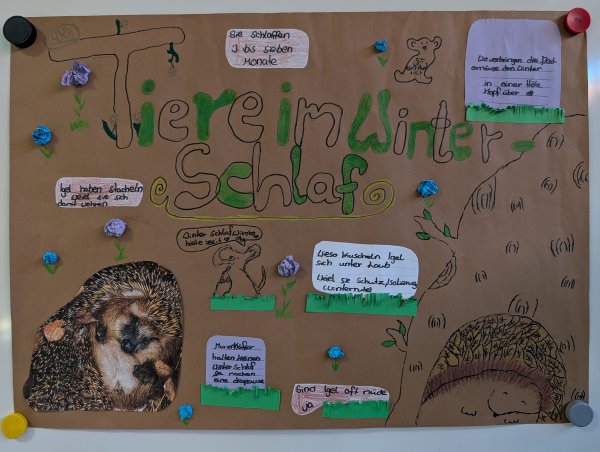 Tiere im Winter-
Schlaf
Sie schlaffen
3 bis sieben
Monate
Da verbringen die
den Winter
in einer Höle
Kopf über
Igel haben stacheln
weiel sie sich
damit wehren
Winter schlaf
Diese kuscheln Igel
sich unter Laub
Weiel sie Schutz/Isolierung
Marienkäfer
halten keinen
Winter Schlaf
Sie machen
eine
Sind Igel oft müde
ja